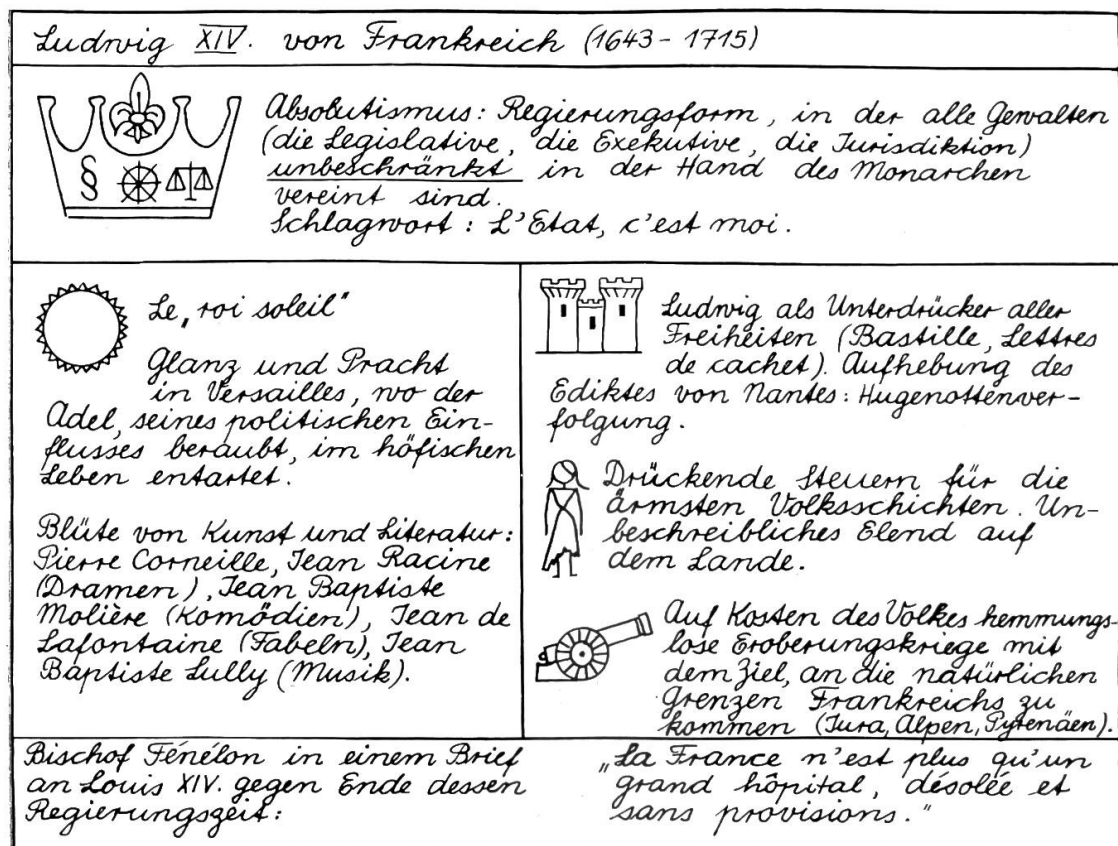 Ludwig XIV. von Frankreich (1643-1715)
Absolutismus: Regierungsform, in der alle Gewalten
(die Legislative, die Exekutive, die Jurisdiktion)
unbeschränkt in der Hand des Monarchen
vereint sind.
Schlagwort: L'Etat, c'est moi.
§
Le „roi soleil"
Glanz und Pracht
in Versailles, wo der
Adel, seines politischen Ein-
flusses beraubt, im höfischen
Leben entartet.
Blüte von Kunst und Literatur:
Pierre Corneille, Jean Racine
(Dramen), Jean Baptiste
Molière (Komödien), Jean de
Lafontaine (Fabeln), Jean
Baptiste Lully (Musik).
Ludwig als Unterdrücker aller
Freiheiten (Bastille, Lettres
de cachet). Aufhebung des
Ediktes von Nantes: Hugenottenver-
folgung.
Drückende Steuern für die
ärmsten Volksschichten. Un-
beschreibliches Elend auf
dem Lande.
Auf Kosten des Volkes hemmungs-
lose Eroberungskriege mit
dem Ziel, an die natürlichen
Grenzen Frankreichs zu
kommen (Jura, Alpen, Pyrenäen).
Bischof Fénélon in einem Brief
an Louis XIV. gegen Ende dessen
Regierungszeit:
„La France n'est plus qu'un
grand hôpital, désolée et
sans provisions."